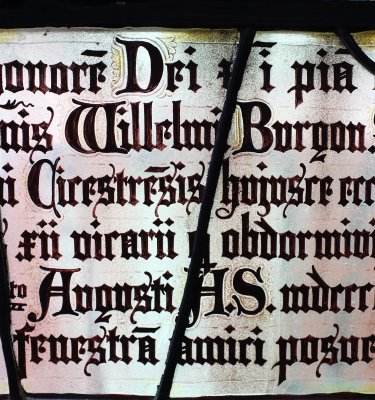 onorē Dei et ī piā
nis Willelmi Burgon
i Cicestrēsis hojusce ecc
xii vicarii obdormivi
to Augusti A.S. mdccc
fenestrā amici posve